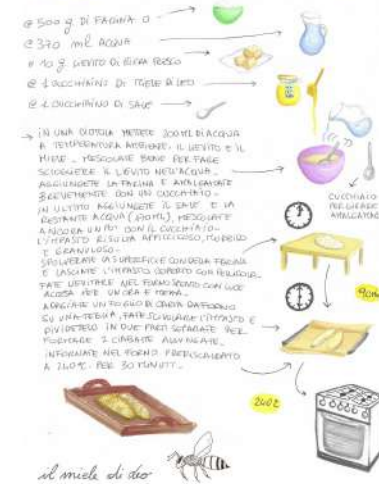 500 g DI FARINA 0
370 ml ACQUA
10 g LIEVITO DI BIRRA FRESCO
1 CUCCHIAINO DI MIELE DI LEO
1 CUCCHIAINO DI SALE
IN UNA CIOTOLA METTETE 300 ML DI ACQUA
A TEMPERATURA AMBIENTE, IL LIEVITO E IL
MIELE. MESCOLATE BENE PER FARE
SCIOGLIERE IL LIEVITO NELL'ACQUA.
AGGIUNGETE LA FARINA E AMALGAMATE
BREVEMENTE CON UN CUCCHIAIO.
IN ULTIMO AGGIUNGETE IL SALE E LA
RESTANTE ACQUA (70ML), MESCOLATE
ANCORA UN PO' CON IL CUCCHIAIO.
L'IMPASTO RISULTA APPICCICOSO, MORBIDO
E GRANULOSO.
SPOLVERATE LA SUPERFICIE CON DELLA FARINA
E LASCIATE L'IMPASTO COPERTO CON PELLICOLA.
FATE LIEVITARE NEL FORNO SPENTO CON LUCE
ACCESA PER UN'ORA E MEZZA.
ADAGIATE UN FOGLIO DI CARTA DA FORNO
SU UNA TEGLIA, FATE SCIVOLARE L'IMPASTO E
DIVIDETELO IN DUE PARTI SEPARATE PER
FORMARE 2 CIABATTE ALLUNGATE.
INFORNATE NEL FORNO PRERISCALDATO
A 240°C PER 30 MINUTI.
CUCCHIAIO
PER GIRARE
AMALGAMARE
90m
240°
il miele di leo